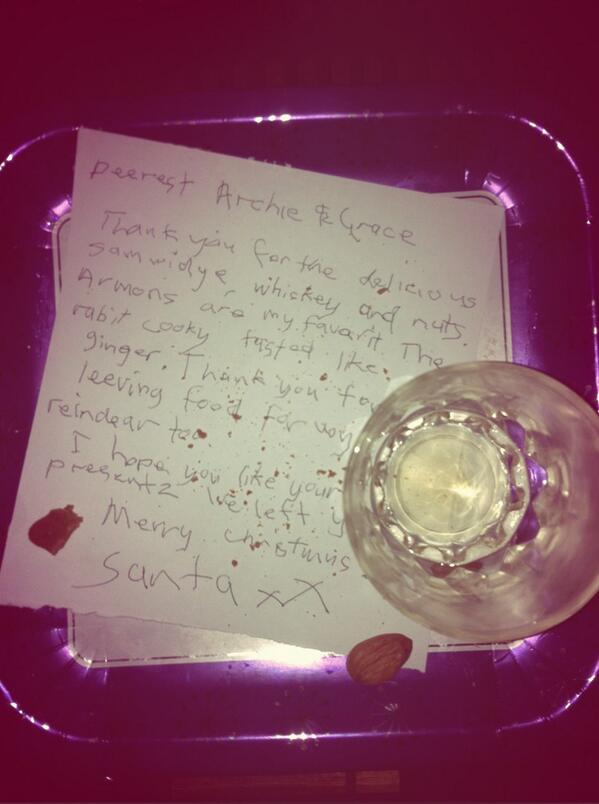 Deerest Archie & Grace
Thank you for the delicious
samwidge whiskey and nuts.
Armons are my favarit The
rabit cooky tasted like
ginger. Thank you fo
leeving food for
reindear too
I hope you like your
presentz we left y
Merry christmus
Santa xX